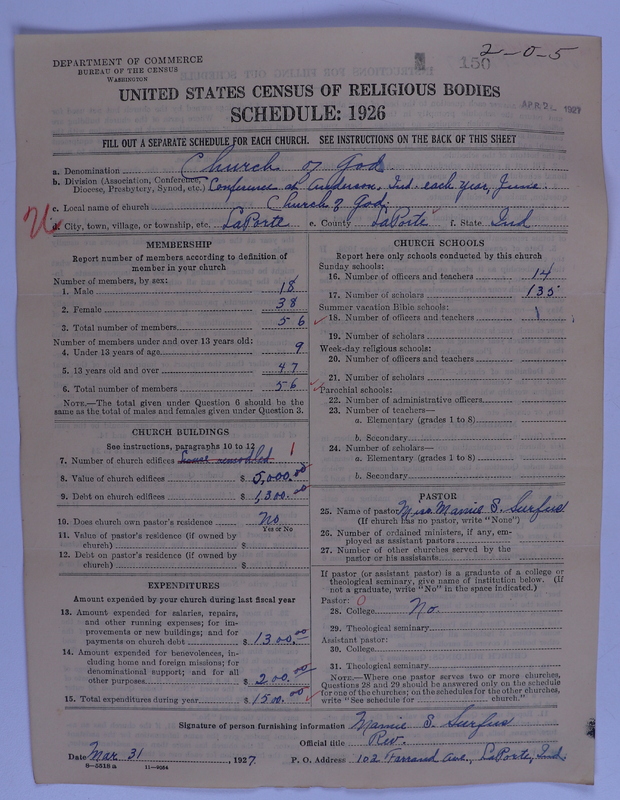 2-0-5
150
DEPARTMENT OF COMMERCE
BUREAU OF THE CENSUS
WASHINGTON
UNITED STATES CENSUS OF RELIGIOUS BODIES
SCHEDULE: 1926
1927
FILL OUT A SEPARATE SCHEDULE FOR EACH CHURCH. SEE INSTRUCTIONS ON THE BACK OF THIS SHEET
a. Denomination Church of God.
b. Division (Association, Conference,
Diocese, Presbytery, Synod, etc.) Conference at Anderson, Ind. each year, June.
c. Local name of church Church of God.
d. City, town, village, or township, etc. LaPorte e. County LaPorte f. State Ind
MEMBERSHIP
Report number of members according to definition of
member in your church
Number of members, by sex:
1. Male 18
2. Female 38
3. Total number of members 56
Number of members under and over 13 years old:
4. Under 13 years of age 9
5. 13 years old and over 47
6. Total number of members 56
NOTE.—The total given under Question 6 should be the
same as the total of males and females given under Question 3.
CHURCH BUILDINGS
See instructions, paragraphs 10 to 12
7. Number of church edifices house remodeled 1
8. Value of church edifices $ 5,000.00
9. Debt on church edifices $ 1,300.00
10. Does church own pastor's residence No
Yes or No
11. Value of pastor's residence (if owned by
church) $
12. Debt on pastor's residence (if owned by
church) $
EXPENDITURES
Amount expended by your church during last fiscal year
13. Amount expended for salaries, repairs,
and other running expenses; for im-
provements or new buildings; and for
payments on church debt $ 1300.00
14. Amount expended for benevolences, in-
cluding home and foreign missions; for
denominational support; and for all
other purposes $ 200.00
15. Total expenditures during year $ 1500.00
CHURCH SCHOOLS
Report here only schools conducted by this church
Sunday schools:
16. Number of officers and teachers 14
17. Number of scholars 135
Summer vacation Bible schools:
18. Number of officers and teachers 1
19. Number of scholars
Week-day religious schools:
20. Number of officers and teachers
21. Number of scholars
Parochial schools:
22. Number of administrative officers
23. Number of teachers—
a. Elementary (grades 1 to 8)
b. Secondary
24. Number of scholars—
a. Elementary (grades 1 to 8)
b. Secondary
PASTOR
25. Name of pastor Miss. Mamie S. Surfus
(If church has no pastor, write "None")
26. Number of ordained ministers, if any, em-
ployed as assistant pastors
27. Number of other churches served by the
pastor or his assistants
If pastor (or assistant pastor) is a graduate of a college or
theological seminary, give name of institution below. (If
not a graduate, write "No" in the space indicated.)
Pastor: 0
28. College No.
29. Theological seminary
Assistant pastor:
30. College
31. Theological seminary
NOTE.—Where one pastor serves two or more churches,
Questions 28 and 29 should be answered only on the schedule
for one of the churches; on the schedules for the other churches,
write "See schedule for church."
Signature of person furnishing information Mamie S. Surfus
Official title Rev.
Date Mar 31, 1927. P. O. Address 102 Farrand Ave., LaPorte, Ind.
8-5518a 11-9064